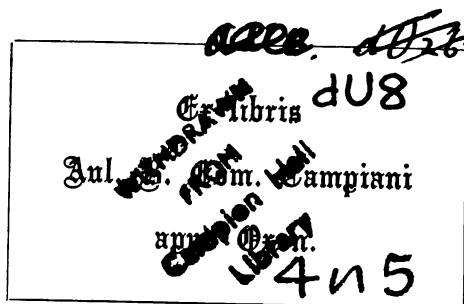 dU8
Ex libris
Aul. B. Edm. Campiani
apud Oxon.
WITHDRAWN
FROM
Campion Hall
Library
4n5